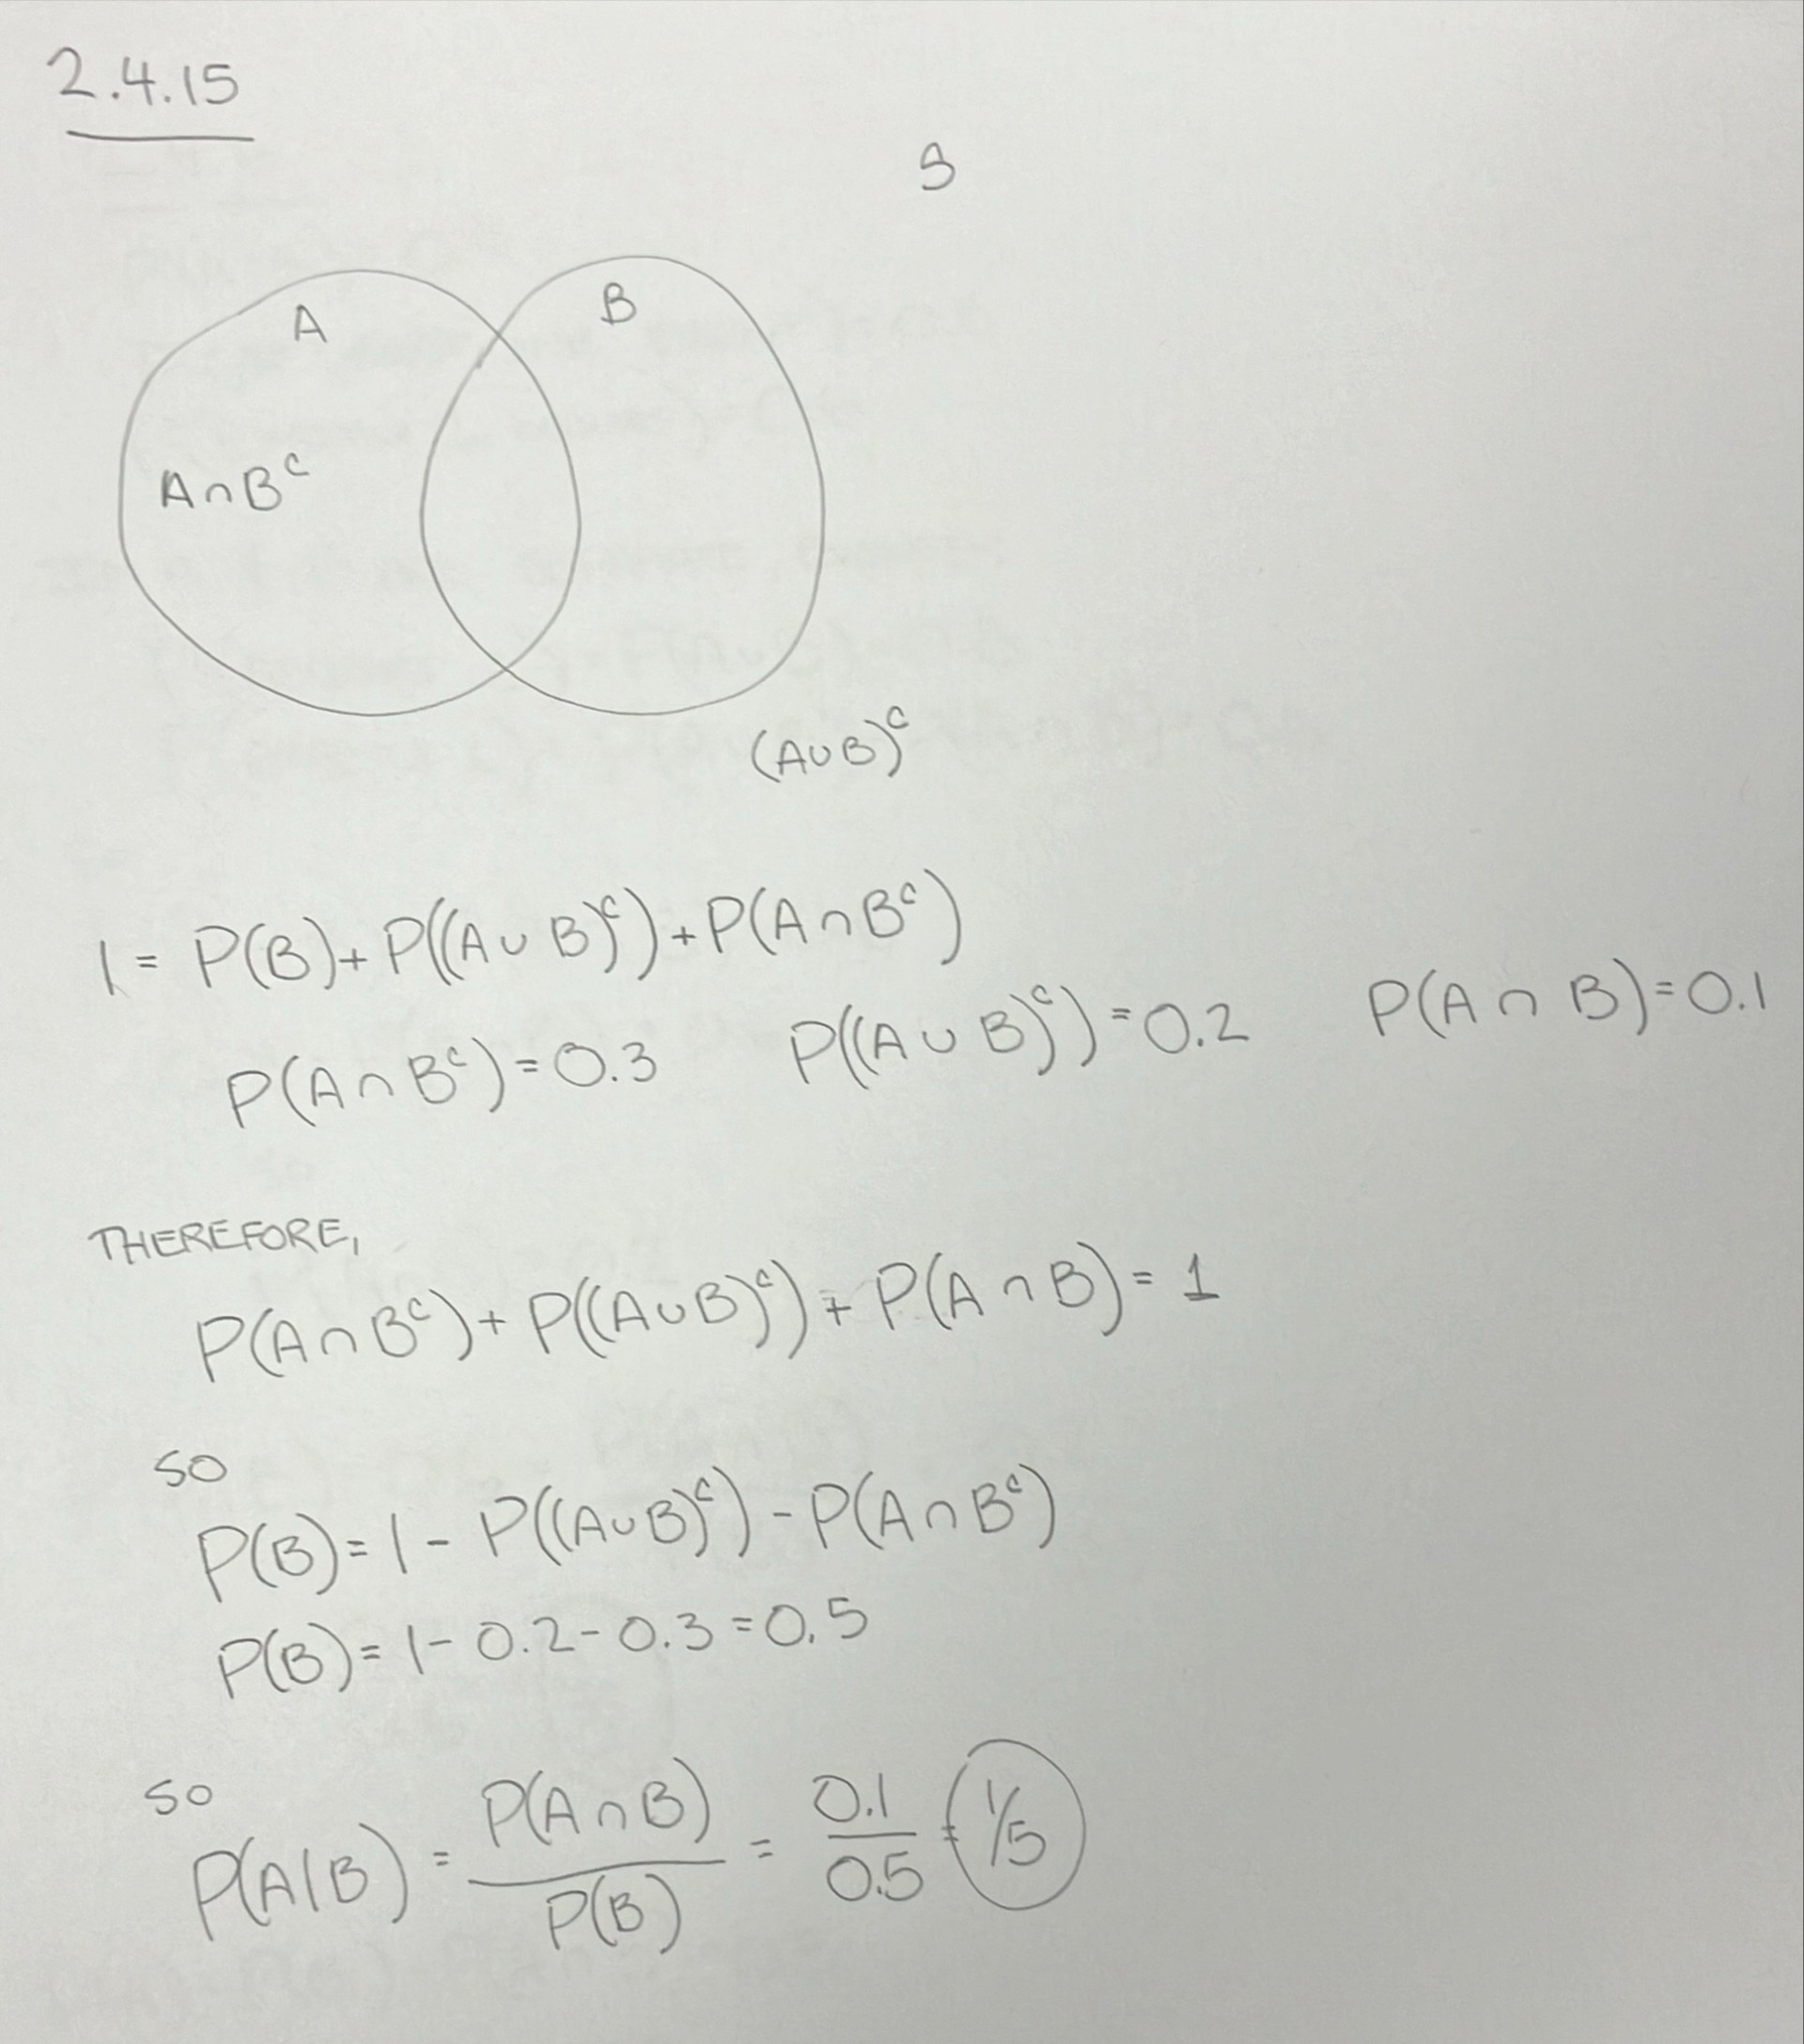 2.4.15
S
A B
A∩Bᶜ
(A∪B)ᶜ
1 = P(B) + P((A∪B)ᶜ) + P(A∩Bᶜ)
P(A∩Bᶜ) = 0.3 P((A∪B)ᶜ) = 0.2 P(A∩B) = 0.1
THEREFORE,
P(A∩Bᶜ) + P((A∪B)ᶜ) + P(A∩B) = 1
SO
P(B) = 1 - P((A∪B)ᶜ) - P(A∩Bᶜ)
P(B) = 1 - 0.2 - 0.3 = 0.5
SO
P(A|B) = P(A∩B) / P(B) = 0.1 / 0.5 = 1/5